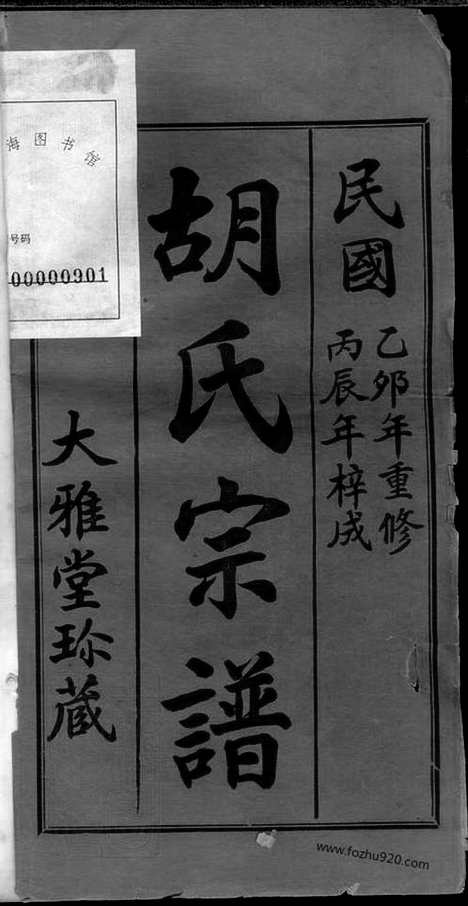 民國
乙卯年重修
丙辰年梓成
胡氏宗譜
大雅堂珍藏
海图书馆
号码
00000901
www.fozhu920.com